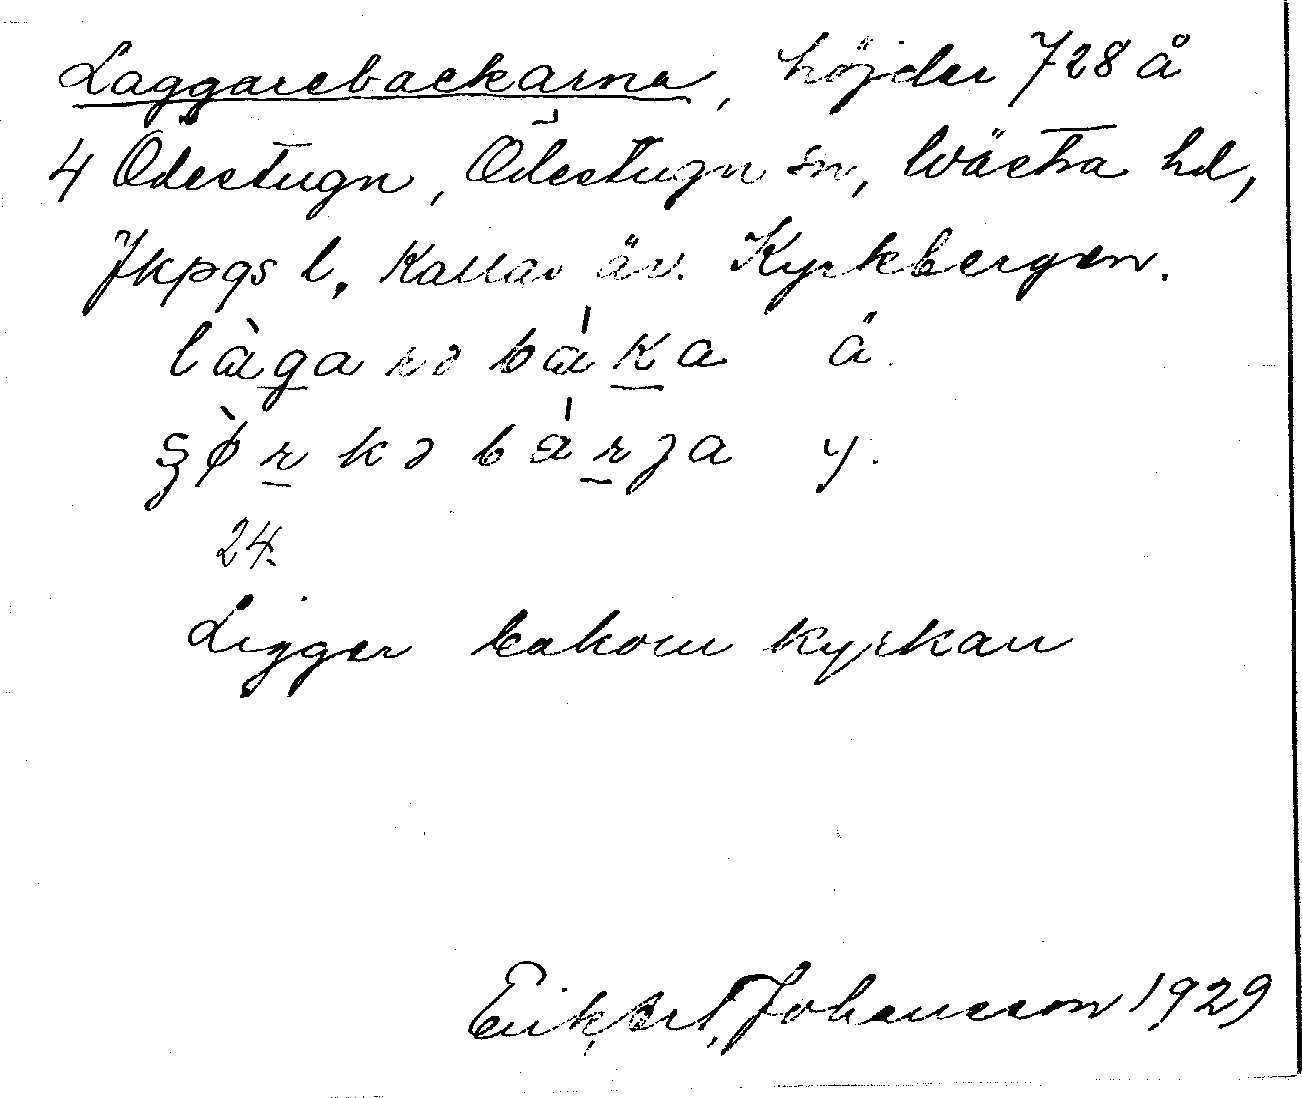 Laggarebackarna, höjder 728 å
4 Ödestugn, Ödestugn sn, Wästra hd,
Jkpgs l. Kallas äv. Kyrkbergen.
làgarəbáka ä.
ʂø̀rkəbárja y.
24.
Ligger bakom kyrkan
Erik Johansson 1929